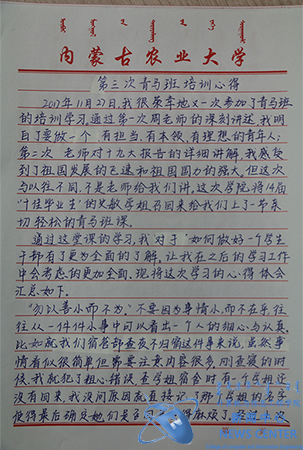 内蒙古农业大学
第三次青马班培训心得
2017年11月27日,我很荣幸地又一次参加了青马班
的培训学习,通过第一次周老师的课刻讲述,我明
白了要做一个有担当,有本领,有理想的青年人;
第二次 老师对十九大报告的详细讲解,我感受
到了祖国发展的飞速和祖国国力的强大,但这次
与以往不同,不是老师给我们讲,这次学院将14届
"十佳毕业生"的史敏学姐召回来给我们上了一节亲
切轻松的青马班课。
通过这堂课的学习,我对于"如何做好一个学生
干部有了更为全面的了解,让我在之后的学习工作
中会考虑的更加全面,现将这次学习的心得体会
汇总如下。
"勿以善小而不为,"不要因为事情小,而不在乎,往
往从一件件小事中可以看出一个人的细心与认真,
比如就我们宿管部查夜不归宿这件事来说,虽然事
情看似很简单但需要注意内容很多,刚查寝的时
候,我就犯了粗心错误,查学姐宿舍时有一个学姐还
没有回来,我没问原因就直接记了那个学姐的名字,
使得最后确
NEWS CENTER